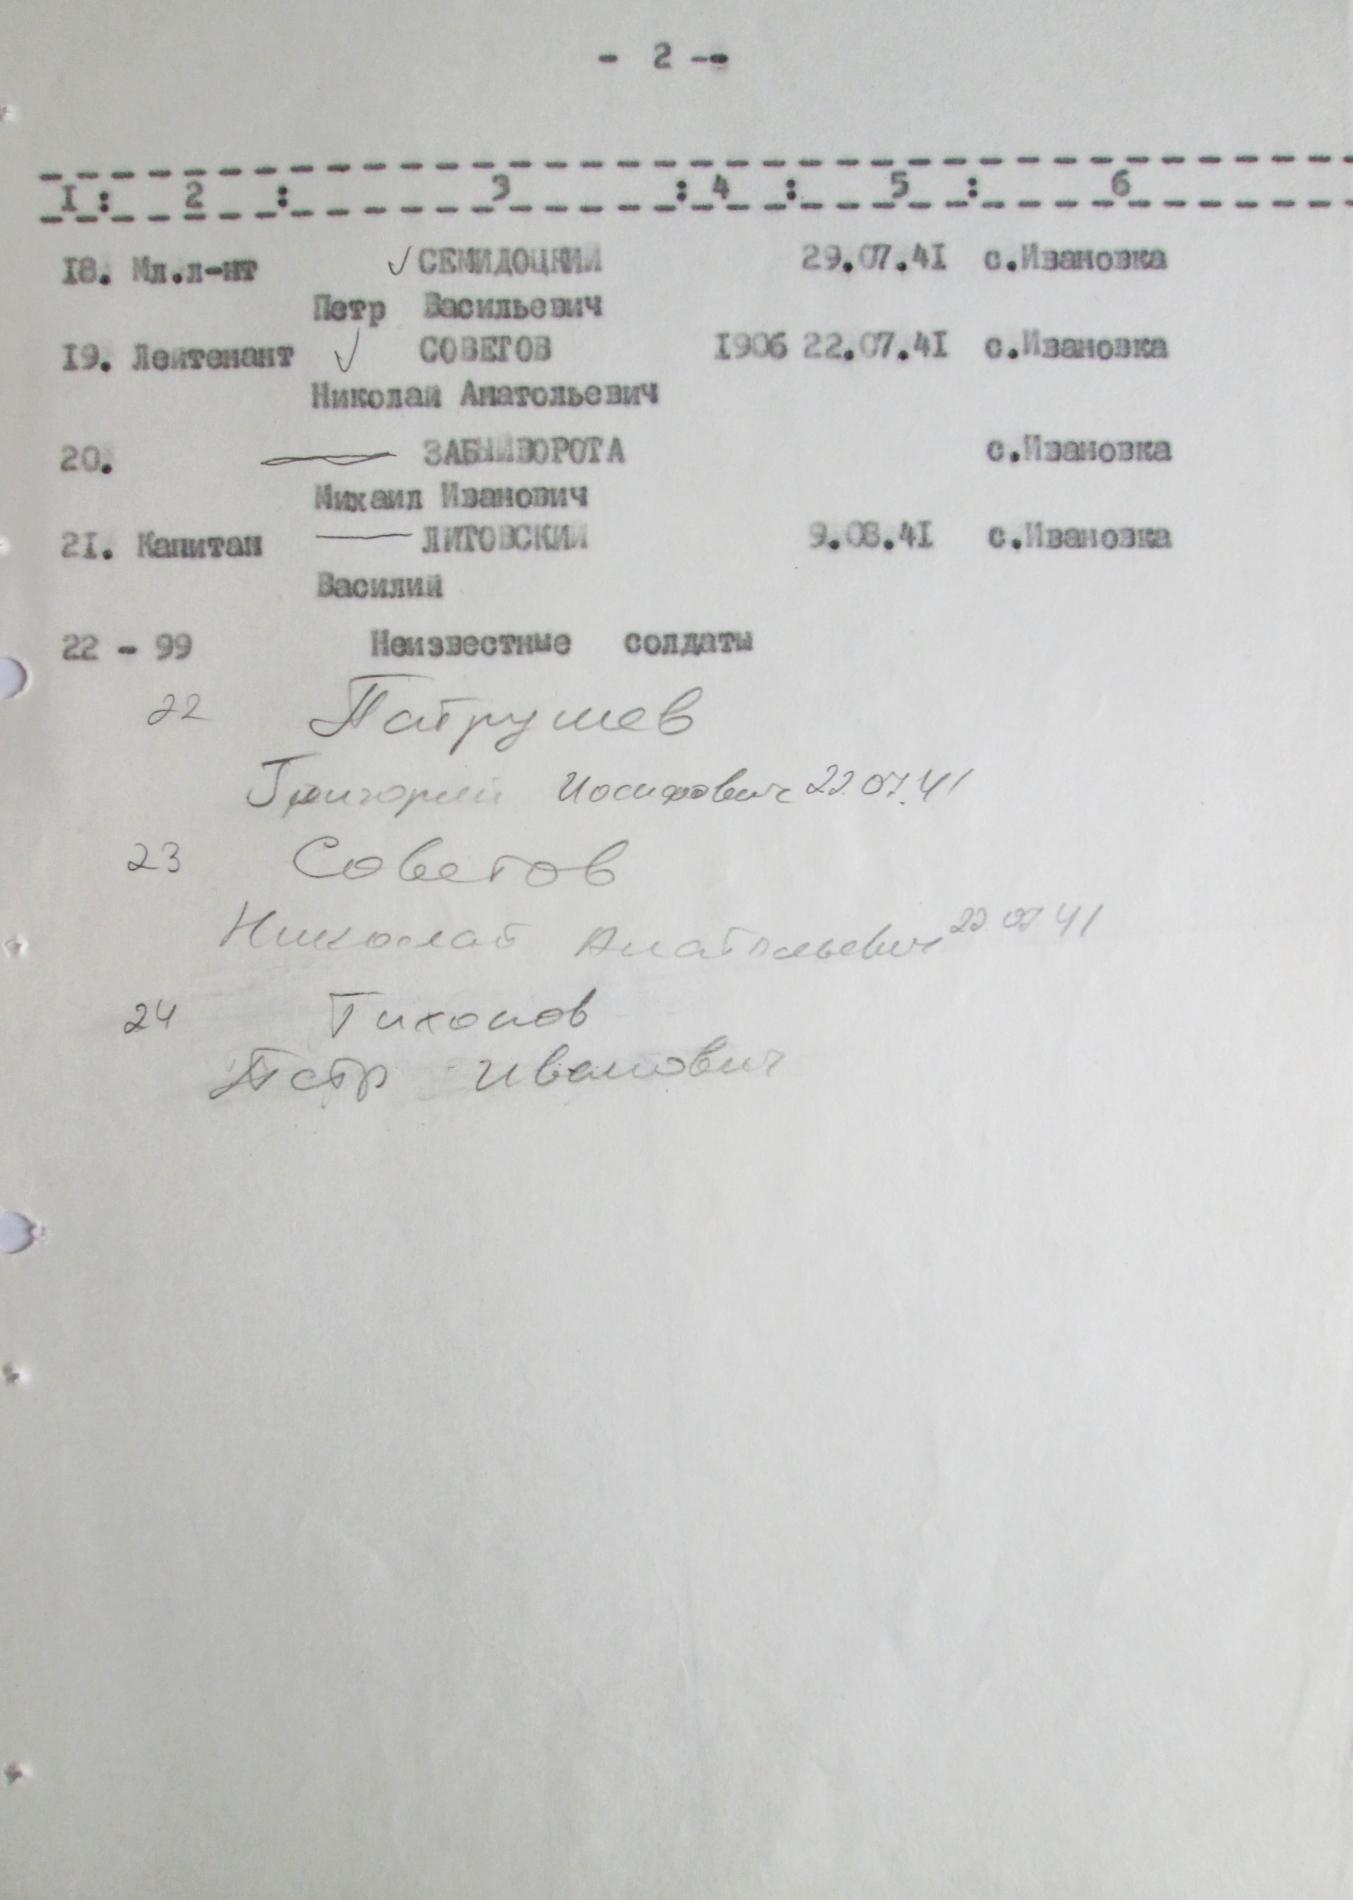 - 2 -
I : 2 : 3 : 4 : 5 : 6
I8. Мл.л-нт СЕМИДОЦКИЙ 29.07.4I с.Ивановка
Петр Васильевич
I9. Лейтенант СОВЕТОВ I906 22.07.4I с.Ивановка
Николай Анатольевич
20. ЗАБЫЙВОРОТА с.Ивановка
Михаил Иванович
2I. Капитан ЛИТОВСКИЙ 9.08.4I с.Ивановка
Василий
22 - 99 Неизвестные солдаты
22 Патрушев
Григорий Иосифович 22.07.41
23 Советов
Николай Анатольевич 22.07.41
24 Тихонов
Петр Иванович